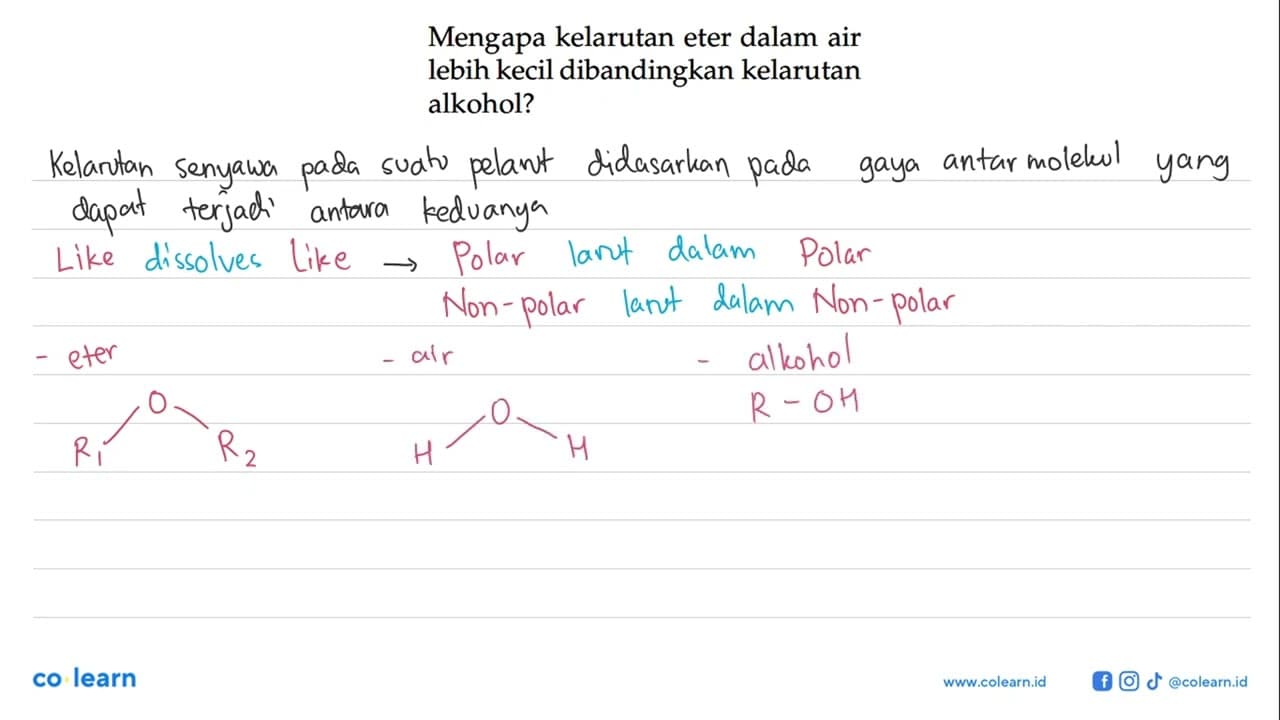 Mengapa kelarutan eter dalam air
lebih kecil dibandingkan kelarutan
alkohol?
Kelarutan senyawa pada suatu pelarut didasarkan pada gaya antar molekul yang
dapat terjadi antara keduanya
Like dissolves Like → Polar larut dalam Polar
Non-polar larut dalam Non-polar
- eter - air - alkohol
O O R - OH
R1 R2 H H
co learn www.colearn.id @colearn.id